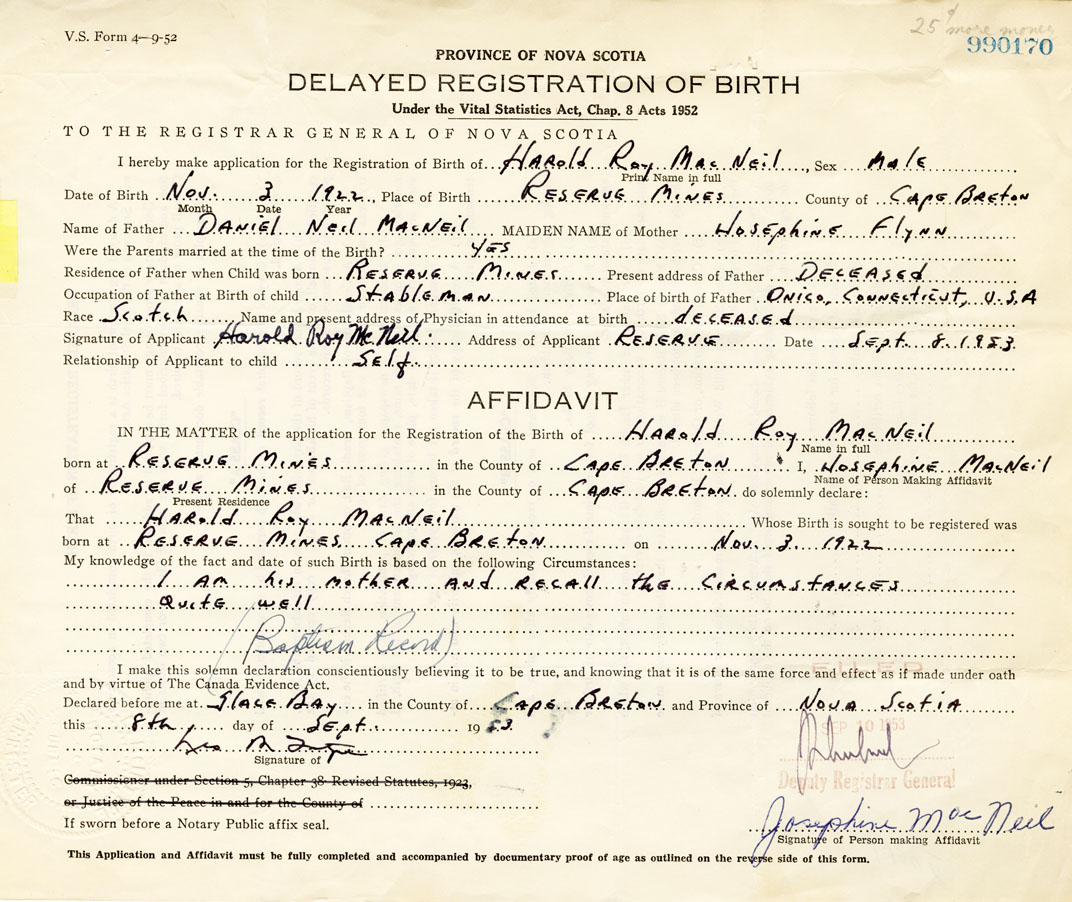 25¢ more money
V.S. Form 4—9-52
990170
PROVINCE OF NOVA SCOTIA
DELAYED REGISTRATION OF BIRTH
Under the Vital Statistics Act, Chap. 8 Acts 1952
TO THE REGISTRAR GENERAL OF NOVA SCOTIA
I hereby make application for the Registration of Birth of Harold Roy MacNeil, Sex Male
Print Name in full
Date of Birth Nov. 3 1922, Place of Birth Reserve Mines County of Cape Breton
Month Date Year
Name of Father Daniel Neil MacNeil MAIDEN NAME of Mother Hosephine Flynn
Were the Parents married at the time of the Birth? yes
Residence of Father when Child was born Reserve Mines Present address of Father Deceased
Occupation of Father at Birth of child Stableman Place of birth of Father Onico, Connecticut, U.S.A
Race Scotch Name and present address of Physician in attendance at birth deceased
Signature of Applicant Harold Roy McNeil Address of Applicant Reserve Date Sept. 8. 1953.
Relationship of Applicant to child Self.
AFFIDAVIT
IN THE MATTER of the application for the Registration of the Birth of Harold Roy MacNeil
Name in full
born at Reserve Mines in the County of Cape Breton I, Hosephine MacNeil
Name of Person Making Affidavit
of Reserve Mines in the County of Cape Breton. do solemnly declare:
Present Residence
That Harold Roy MacNeil Whose Birth is sought to be registered was
born at Reserve Mines Cape Breton on Nov. 3. 1922
My knowledge of the fact and date of such Birth is based on the following Circumstances:
I am his mother and recall the circumstances
quite well
(Baptism Record)
I make this solemn declaration conscientiously believing it to be true, and knowing that it is of the same force and effect as if made under oath
and by virtue of The Canada Evidence Act.
FILED
Declared before me at Glace Bay in the County of Cape Breton and Province of Nova Scotia
this 8th day of Sept. 1953.
SEP 10 1953
Signature of
Deputy Registrar General
Commissioner under Section 5, Chapter 38 Revised Statutes, 1923,
or Justice of the Peace in and for the County of
If sworn before a Notary Public affix seal.
Josephine MacNeil
Signature of Person making Affidavit
This Application and Affidavit must be fully completed and accompanied by documentary proof of age as outlined on the reverse side of this form.